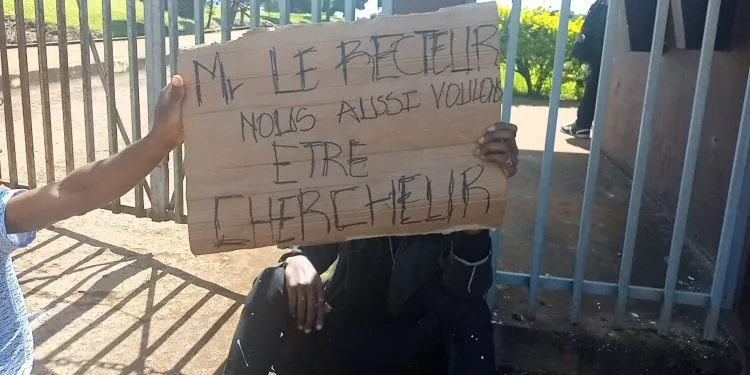 Mr LE RECTEUR
NOUS AUSSI VOULONS
ETRE
CHERCHEUR